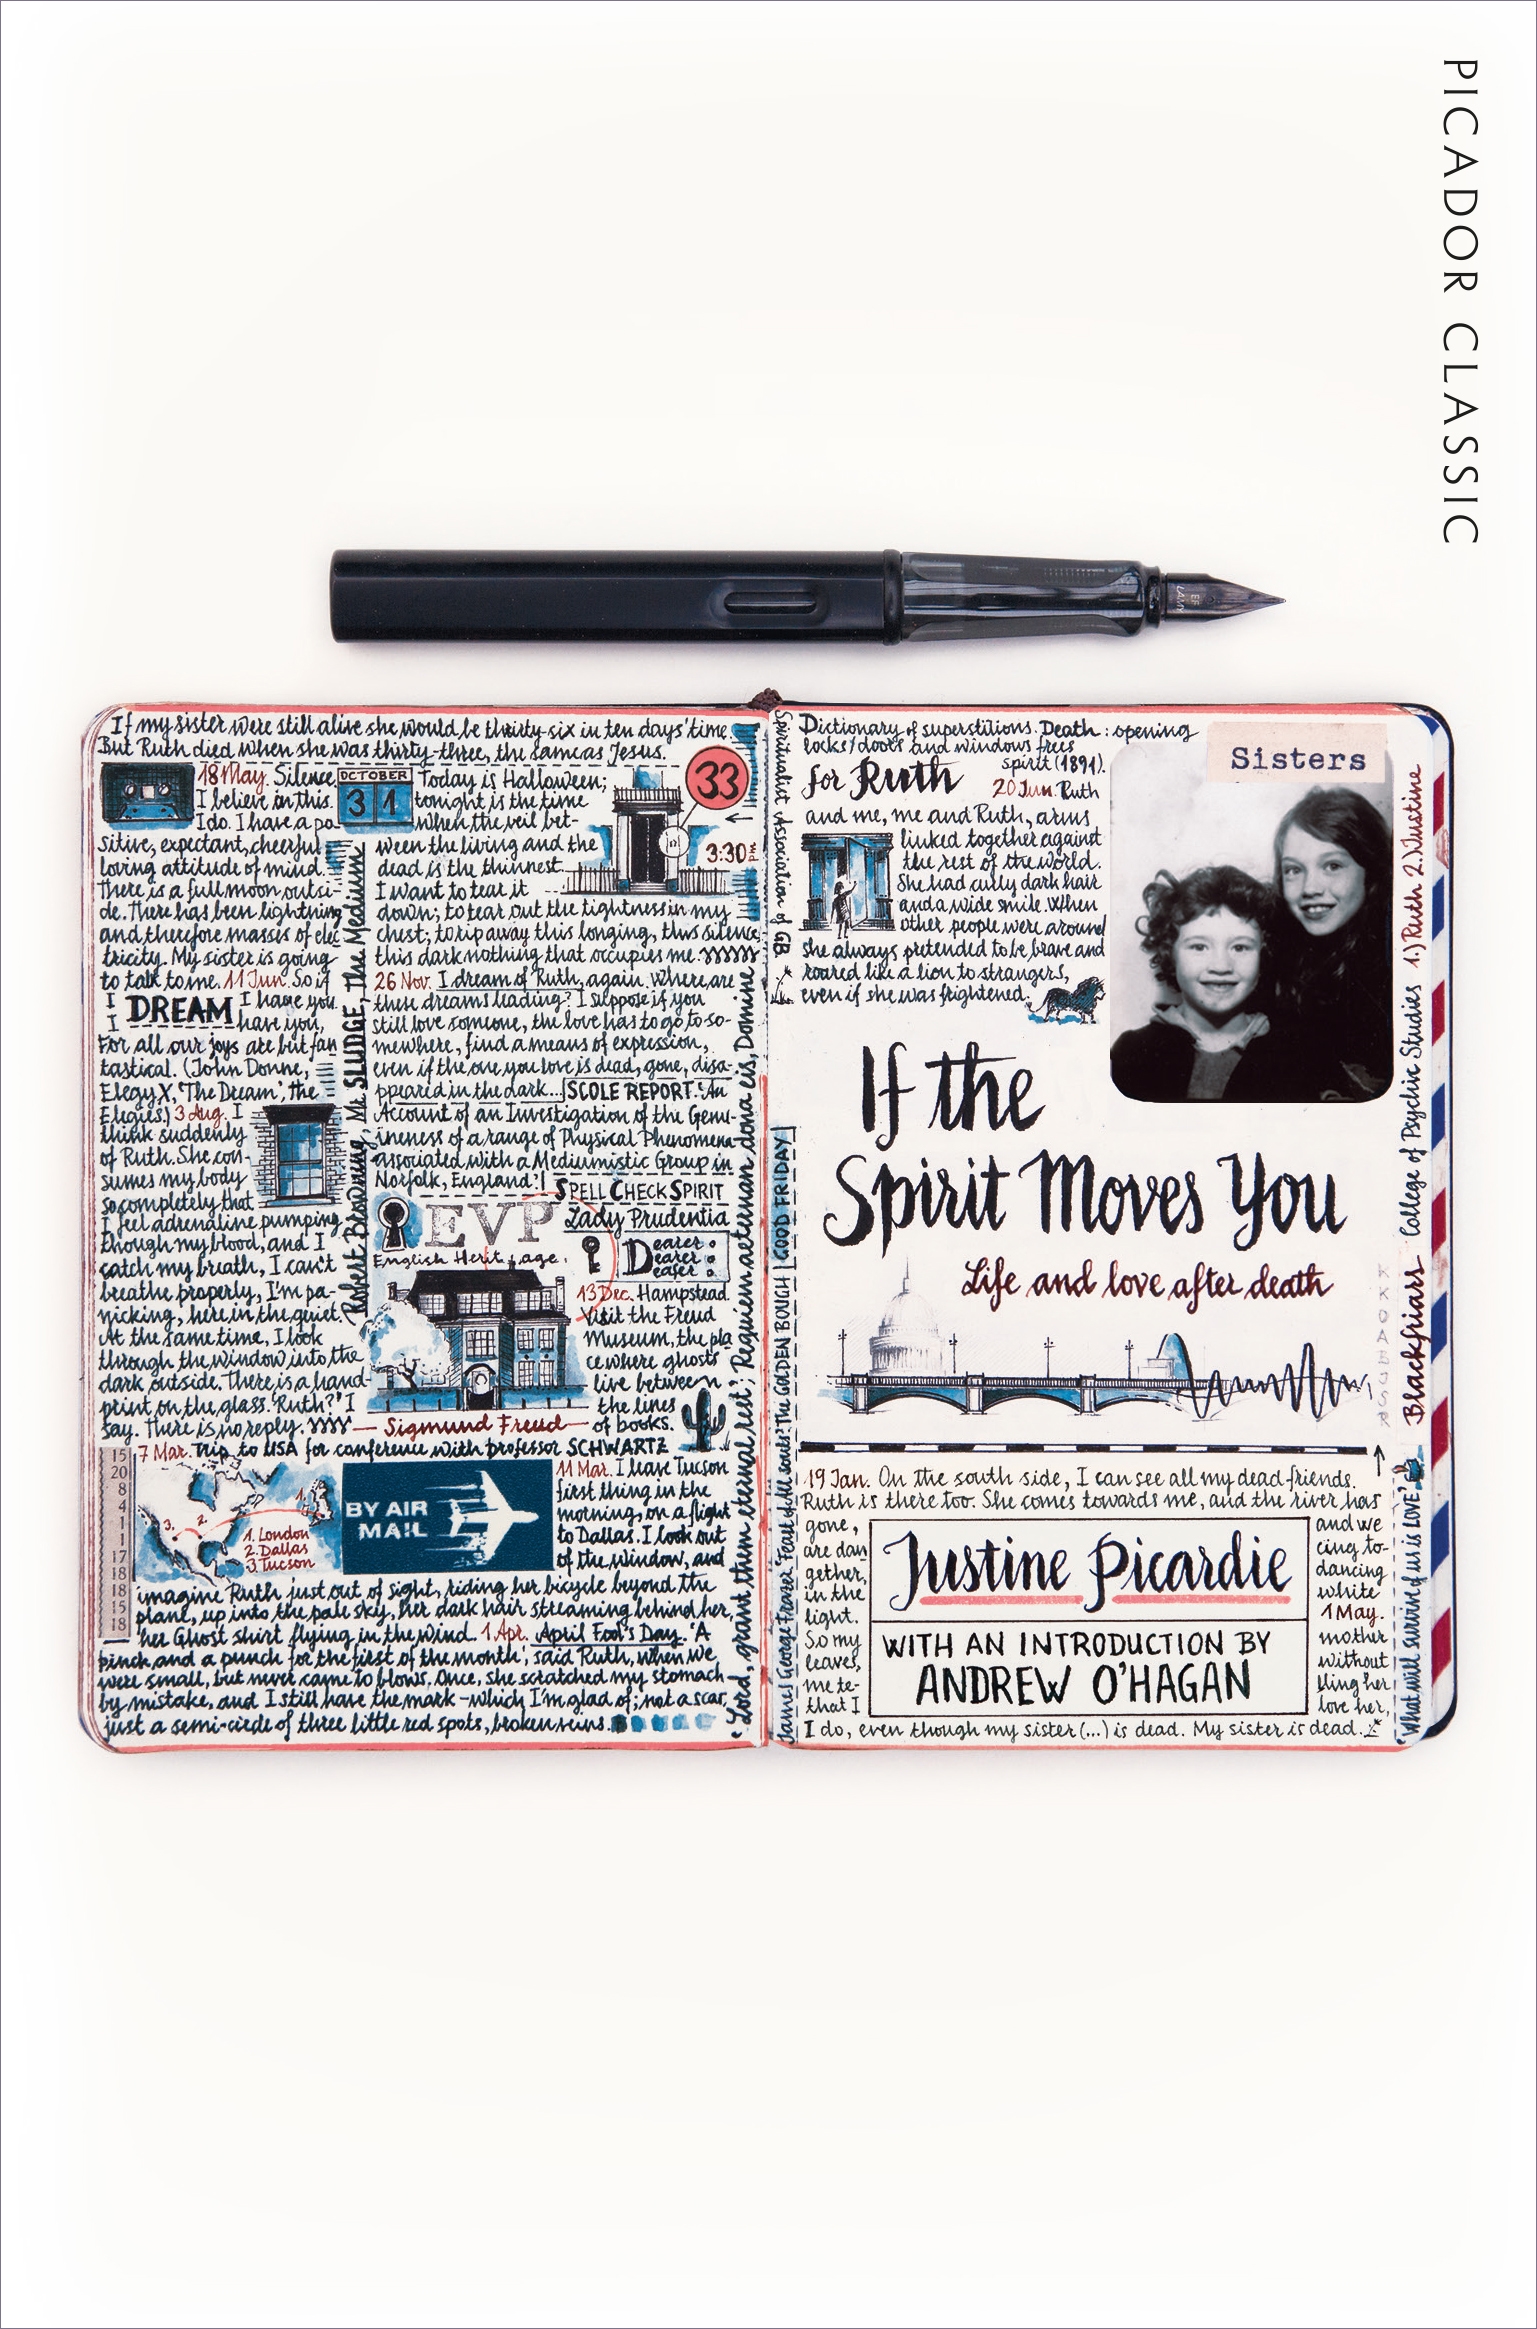 PICADOR CLASSIC
LAMY
EF
If my sister were still alive she would be thirty-six in ten days' time.
But Ruth died when she was thirty-three, the same as Jesus.
33
18 May. Silence.
I believe in this.
I do. I have a po-
sitive, expectant, cheerful
loving attitude of mind.
There is a full moon outsi-
de. There has been lightning
and therefore masses of elec
tricity. My sister is going
to talk to me. 11 Jun. So if
I DREAM I have you,
I have you,
For all our joys are but fan
tastical. (John Donne,
Elegy X, 'The Dream', the
Elegies) 3 Aug. I
think suddenly
of Ruth. She con-
sumes my body
so completely that
I feel adrenaline pumping
though my blood, and I
catch my breath, I can't
breathe properly, I'm pa-
nicking, here in the quiet.
At the same time, I look
through the window into the
dark outside. There is a hand-
print on the glass. 'Ruth?' I
say. There is no reply.
Robert Browning, Mr. SLUDGE, 'The Medium'
OCTOBER
31
Today is Halloween;
tonight is the time
when the veil bet-
ween the living and the
dead is the thinnest.
I want to tear it
down; to tear out the tightness in my
chest; to rip away this longing, this silence
this dark nothing that occupies me.
3:30 pm
26 Nov. I dream of Ruth, again. Where are
these dreams leading? I suppose if you
still love someone, the love has to go to so-
mewhere, find a means of expression,
even if the one you love is dead, gone, disa-
ppeared in the dark... SCOLE REPORT: 'An
Account of an Investigation of the Genu-
ineness of a range of Physical Phenomena
associated with a Mediumistic Group in
Norfolk, England'!
SPELL CHECK SPIRIT
EVP
Lady Prudentia
English Heritage.
Dearer:
Dearer:
Deafer:
13 Dec. Hampstead
Visit the Freud
Museum, the pla
ce where ghosts
live between
the lines
of books.
Sigmund Freud
7 Mar. Trip to USA for conference with professor SCHWARTZ
15
20
8
4
1
1
17
18
18
15
18
1.
2.
3.
1. London
2. Dallas
3. Tucson
BY AIR
MAIL
11 Mar. I leave Tucson
first thing in the
morning, on a flight
to Dallas. I look out
of the window, and
imagine Ruth just out of sight, riding her bicycle beyond the
plane, up into the pale sky, her dark hair streaming behind her,
her Ghost shirt flying in the wind. 1 Apr. April Fool's Day. 'A
pinch and a punch for the first of the month', said Ruth, when we
were small, but never came to blows. Once, she scratched my stomach
by mistake, and I still have the mark – which I'm glad of; not a scar,
just a semi-circle of three little red spots, broken veins.
'Lord, grant them eternal rest'; Requiem aeternam dona eis, Domine
Spiritualist Association of GB
GOOD FRIDAY
James George Frazer 'Feast of All Souls' The GOLDEN BOUGH
Dictionary of superstitions. Death: opening
locks/doors and windows frees
spirit (1891).
for Ruth
20 Jun. Ruth
and me, me and Ruth, arms
linked together against
the rest of the world.
She had curly dark hair
and a wide smile. When
other people were around
she always pretended to be brave and
roared like a lion to strangers,
even if she was frightened.
Sisters
1.) Ruth 2.) Justine
College of Psychic Studies
Blackfriars
'What will survive of us is LOVE'
If the
Spirit Moves You
Life and love after death
19 Jan. On the south side, I can see all my dead friends.
Ruth is there too. She comes towards me, and the river has
gone, and we
are dan cing to-
gether, dancing
in the white
light. 1 May.
So my mother
leaves, without
me te- lling her
that I love her,
I do, even though my sister (...) is dead. My sister is dead.
Justine Picardie
WITH AN INTRODUCTION BY
ANDREW O'HAGAN